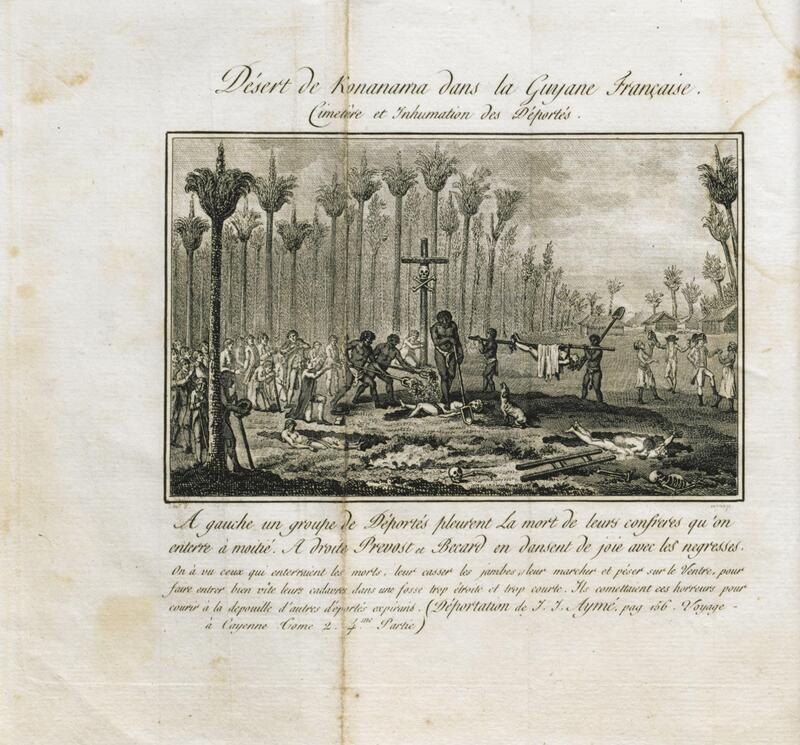 Désert de Konanama dans la Guyane Française.
Cimetère et Inhumation des Déportés.
A gauche un groupe de Déportés pleurent La mort de leurs confreres qu'on
enterre à moitié. A droite Prevost et Becard en dansent de joie avec les negresses.
On à vu ceux qui enterraient les morts, leur casser les jambes, leur marcher et péser sur le Ventre, pour
faire entrer bien vite leurs cadavres dans une fosse trop étroite et trop courte. Ils comettaient ces horreurs pour
courir à la dépouille d'autres déportés expirans. (Déportation de J. J. Aymé, pag 156. Voyage -
à Cayenne Tome 2. 4.me Partie)